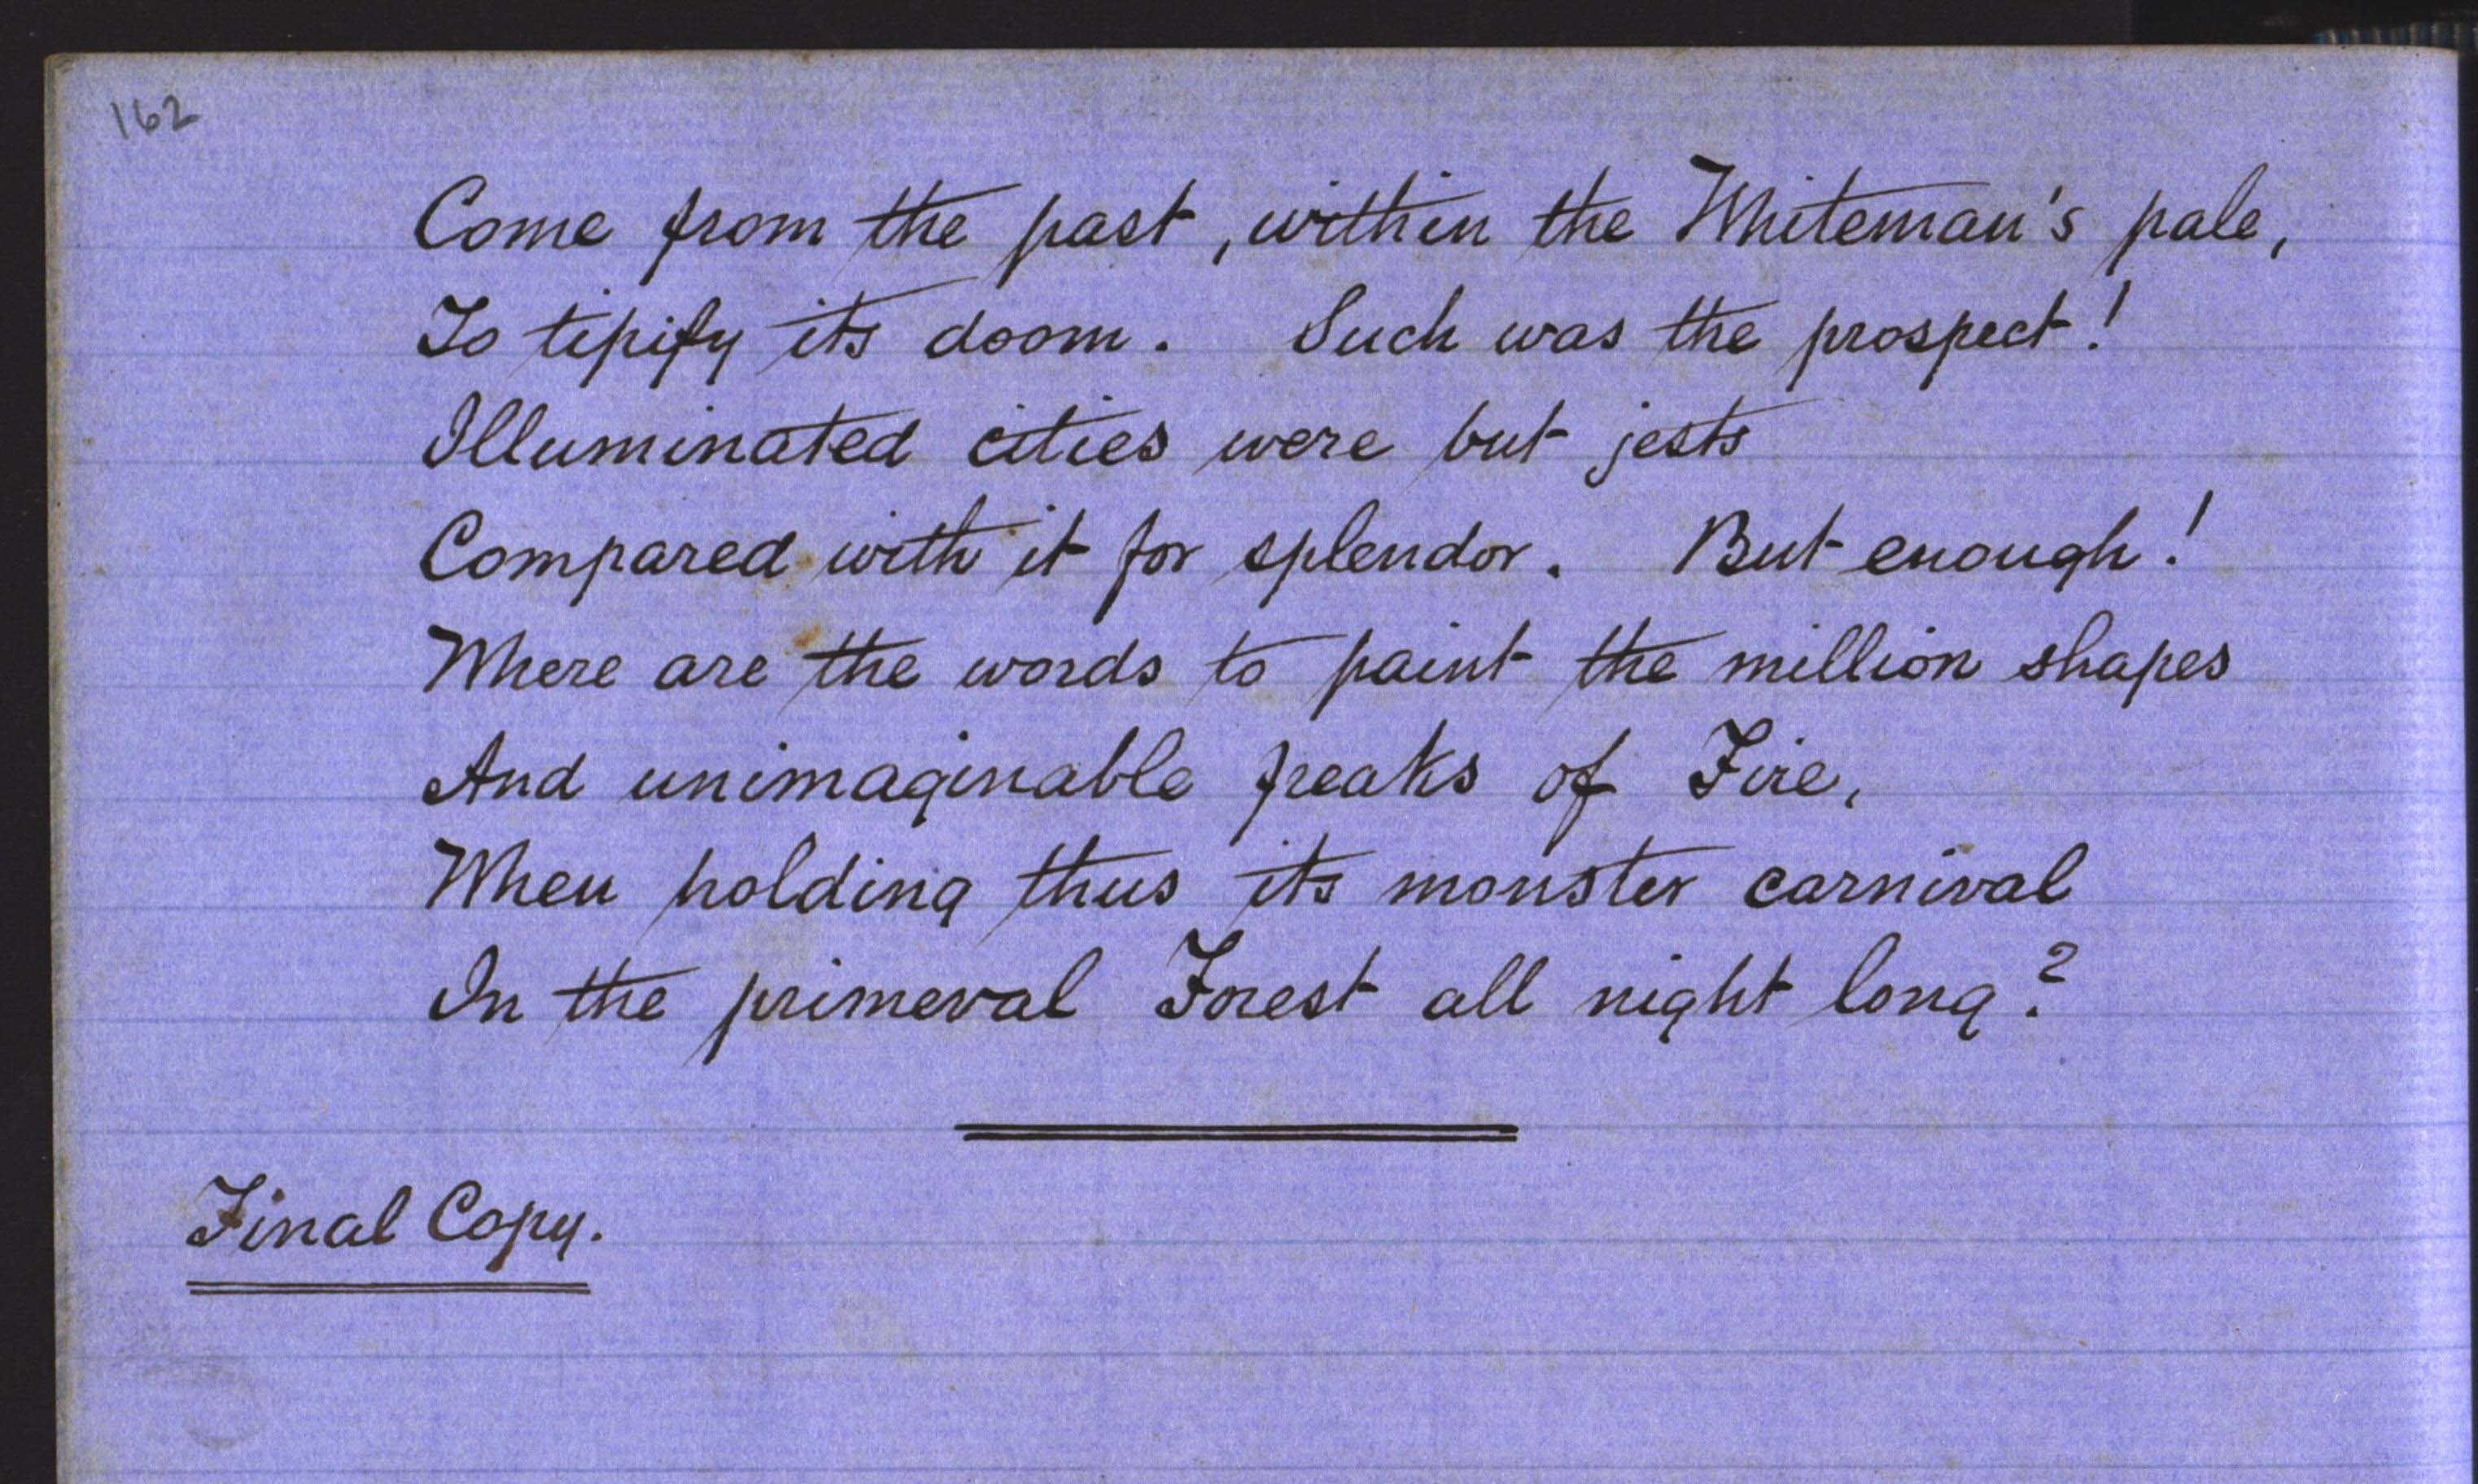 162
Come from the past, within the Whiteman's pale,
To tipify its doom. Such was the prospect!
Illuminated cities were but jests
Compared with it for splendor. But enough!
Where are the words to paint the million shapes
And unimaginable freaks of Fire,
When holding thus its monster carnival
In the primeval Forest all night long?
Final Copy.